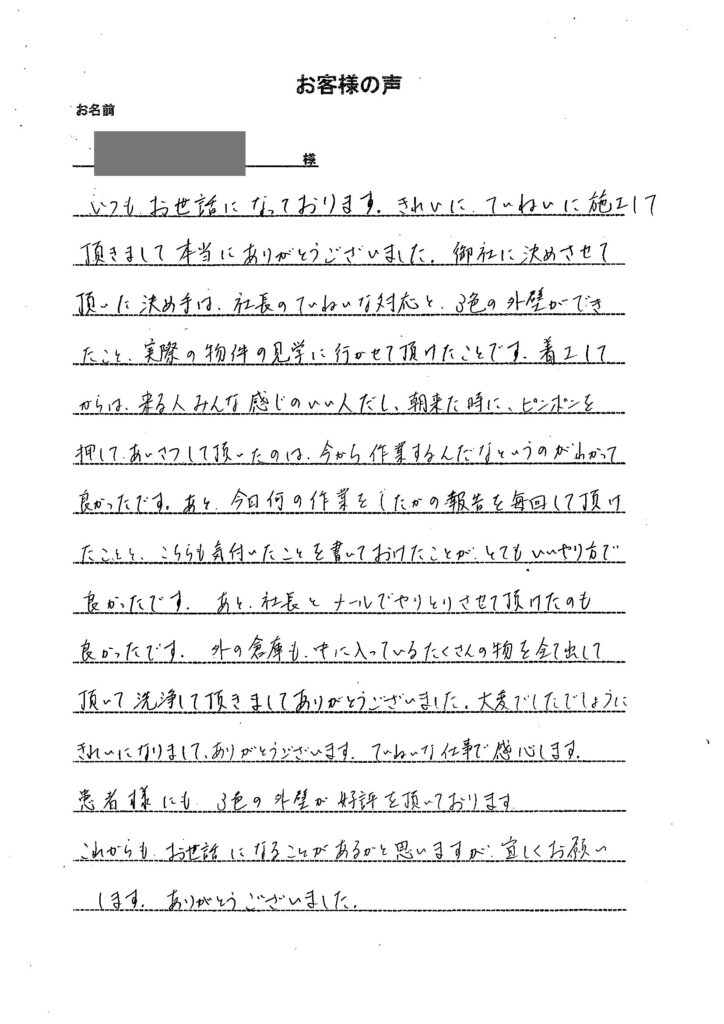 お客様の声
お名前
様
いつもお世話になっております。きれいに、ていねいに施工して
頂きまして本当にありがとうございました。御社に決めさせて
頂いた決め手は、社長のていねいな対応と、3色の外壁ができ
たこと、実際の物件の見学に行かせて頂けたことです。着工して
からは、来る人みんな感じのいい人だし、朝来た時に、ピンポンを
押して、あいさつして頂いたのは、今から作業するんだなというのがわかって
良かったです。あと、今日何の作業をしたかの報告を毎回して頂け
たことと、こちらも気付いたことを書いておけたことが、とてもいいやり方で
良かったです。 あと、社長とメールでやりとりさせて頂けたのも
良かったです。 外の倉庫も、中に入っているたくさんの物を全て出して
頂いて洗浄して頂きましてありがとうございました。大変でしたでしょうに
きれいになりまして、ありがとうございます。ていねいな仕事で感心します。
患者様にも、3色の外壁が好評を頂いております
これからも、お世話になることがあるかと思いますが、宜しくお願い
します。 ありがとうございました。